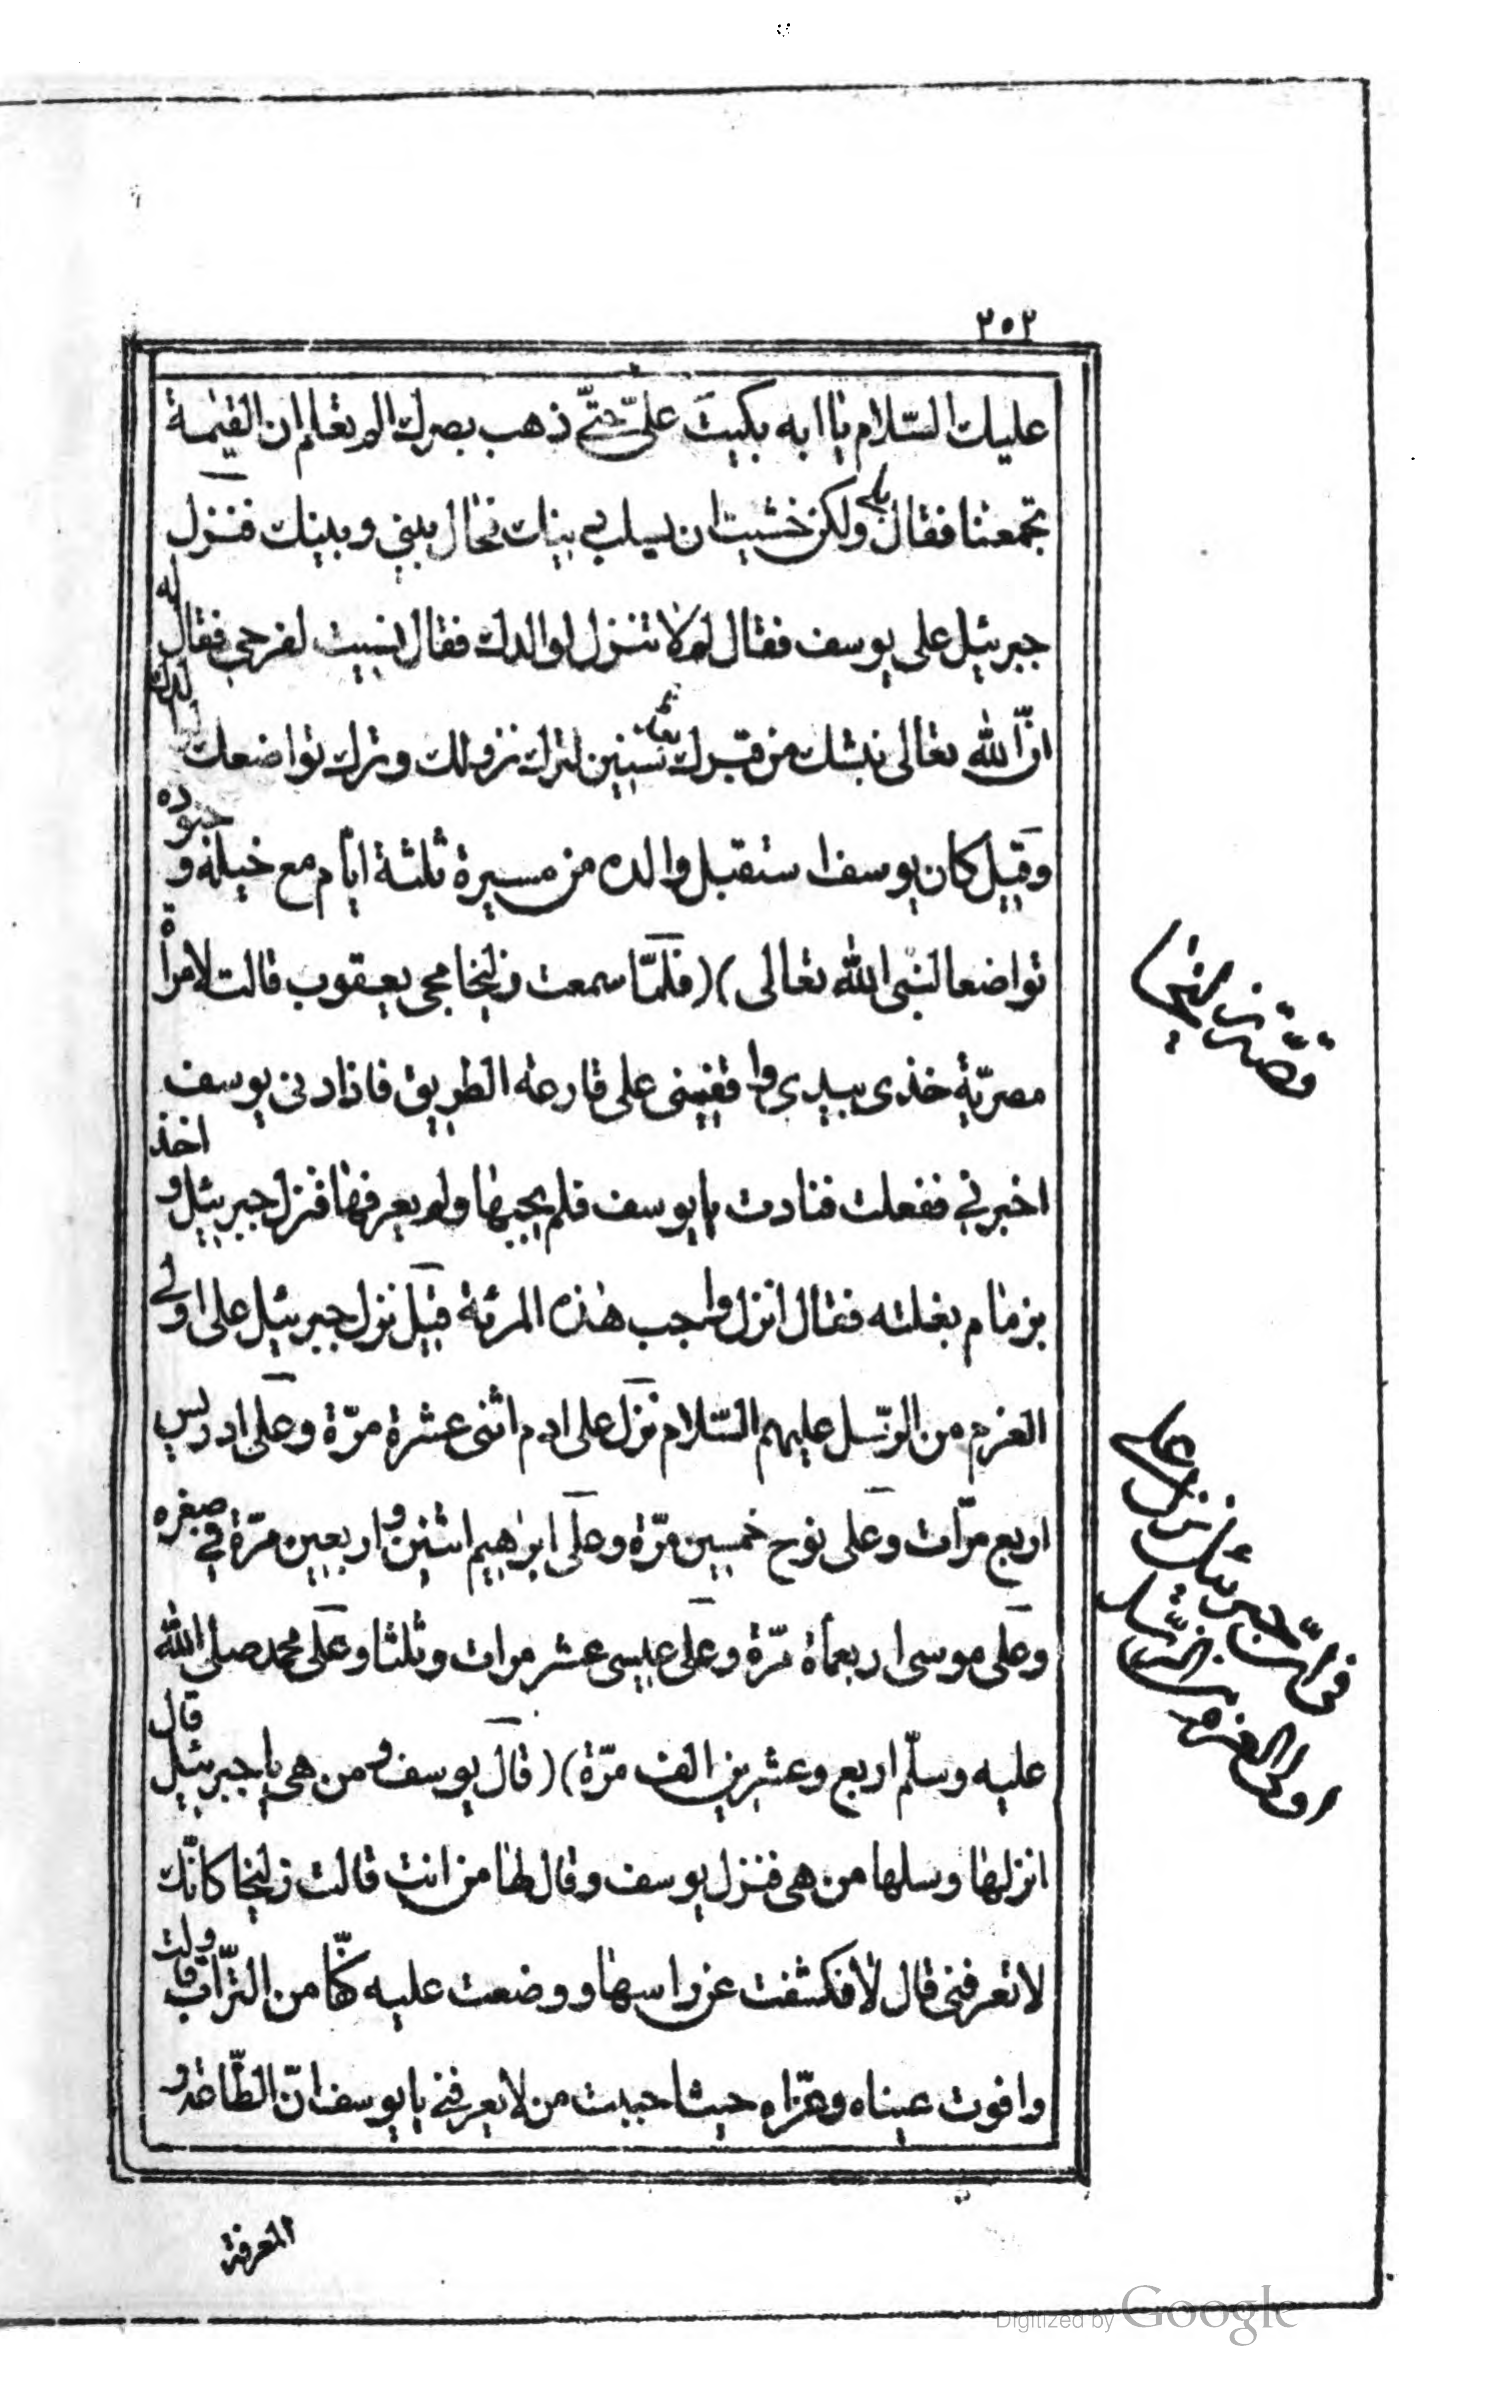 ٢٥٢
عليك السّلام يا ابه بكيت علىّ حتّى ذهب بصرك الم تعلم ان القيمة
تجمعنا فقال بلى ولكن خشيت ان يسلب دينك فحال بينى وبينك فنزل
جبرئيل على يوسف فقال لم لا تنزل لوالدك فقال نسيت لفرحى فقال له
انّ الله تعالى نبشك من قبرك سنين لترك نزولك وترك تواضعك
وقيل كان يوسف استقبل والده من مسيرة ثلثة ايّام مع خيله وجنوده
تواضعا لنبى الله تعالى) (فلمّا سمعت زليخا مجى يعقوب قالت لامرأة
مصريّة خذى بيدى واقفينى على قارعة الطريق فاذا دنى يوسف
اخبرنى ففعلت فنادت يا يوسف فلم يجبها ولم يعرفها فنزل جبرئيل واخذ
بزمام بغلته فقال انزل واجب هذه المرئة قيل نزل جبرئيل على اولى
العزم من الرّسل عليهم السّلام نزل على ادم اثنى عشرة مرّة وعلى ادريس
اربع مرّات وعلى نوح خمسين مرّة وعلى ابرهيم اثنين واربعين مرّة فى صغره
وعلى موسى اربعمأة مرّة وعلى عيسى عشر مرات وثلثا وعلى محمد صلى الله
عليه وسلّم اربع وعشرين الف مرّة) (قال يوسف ومن هى يا جبرئيل قال
انزلها وسلها من هى فنزل يوسف وقال لها من انت قالت زليخا كانّك
لا تعرفنى قال لا فكشفت عن راسها ووضعت عليه كفّا من التّراب وقالت
وافوت عيناه وعزاه حيث احببت من لا يعرفنى يا يوسف انّ الطّاعة و
المعرفة
قصّة زليخا
فى مرّات جبرئيل نزل على
اولى العزم من الرّسل
Digitized by Google